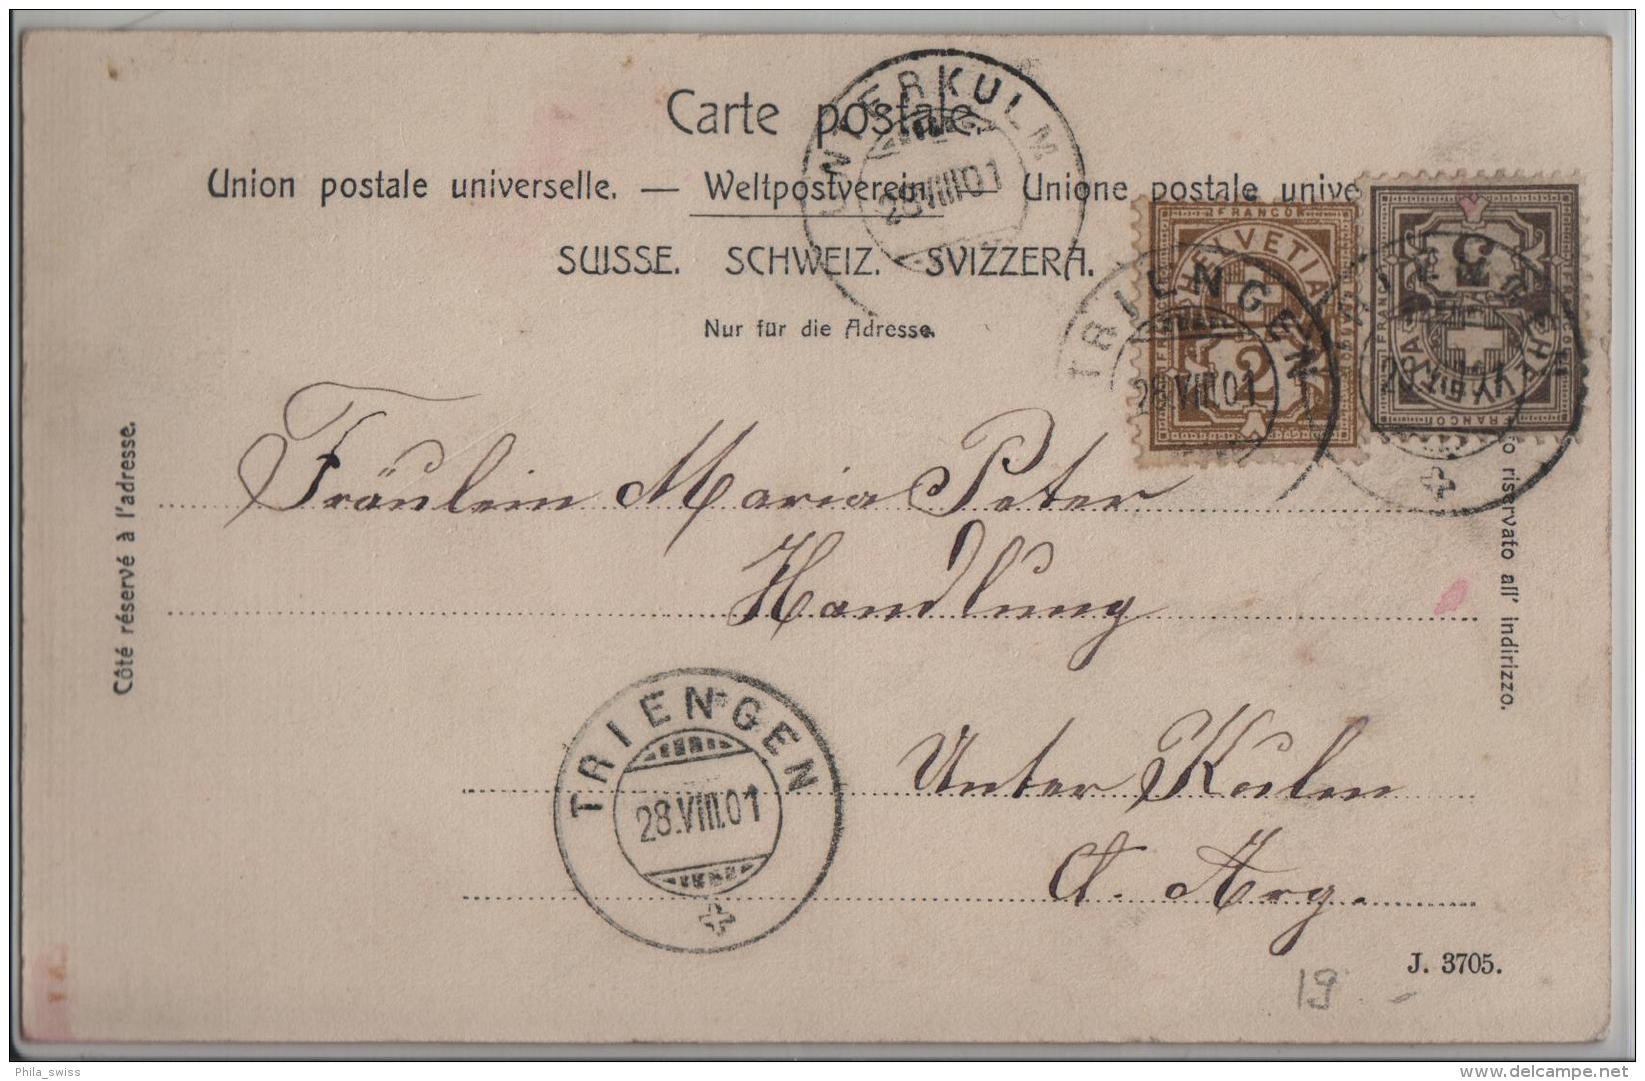 Carte postale.
Union postale universelle. — Weltpostverein. — Unione postale unive
SUISSE. SCHWEIZ. SVIZZERA.
Nur für die Adresse.
UNTERKULM
28.VIII.01
FRANCO
HELVETIA
2
TRIENGEN
28.VIII.01
FRANCO
HELVETIA
3
Côté réservé à l'adresse.
to riservato all' indirizzo.
Fräulein Maria Peter
Handlung
Unter Kulm
Ct. Arg.
TRIENGEN
28.VIII.01
J. 3705.
19.-
Phila_swiss
www.delcampe.net